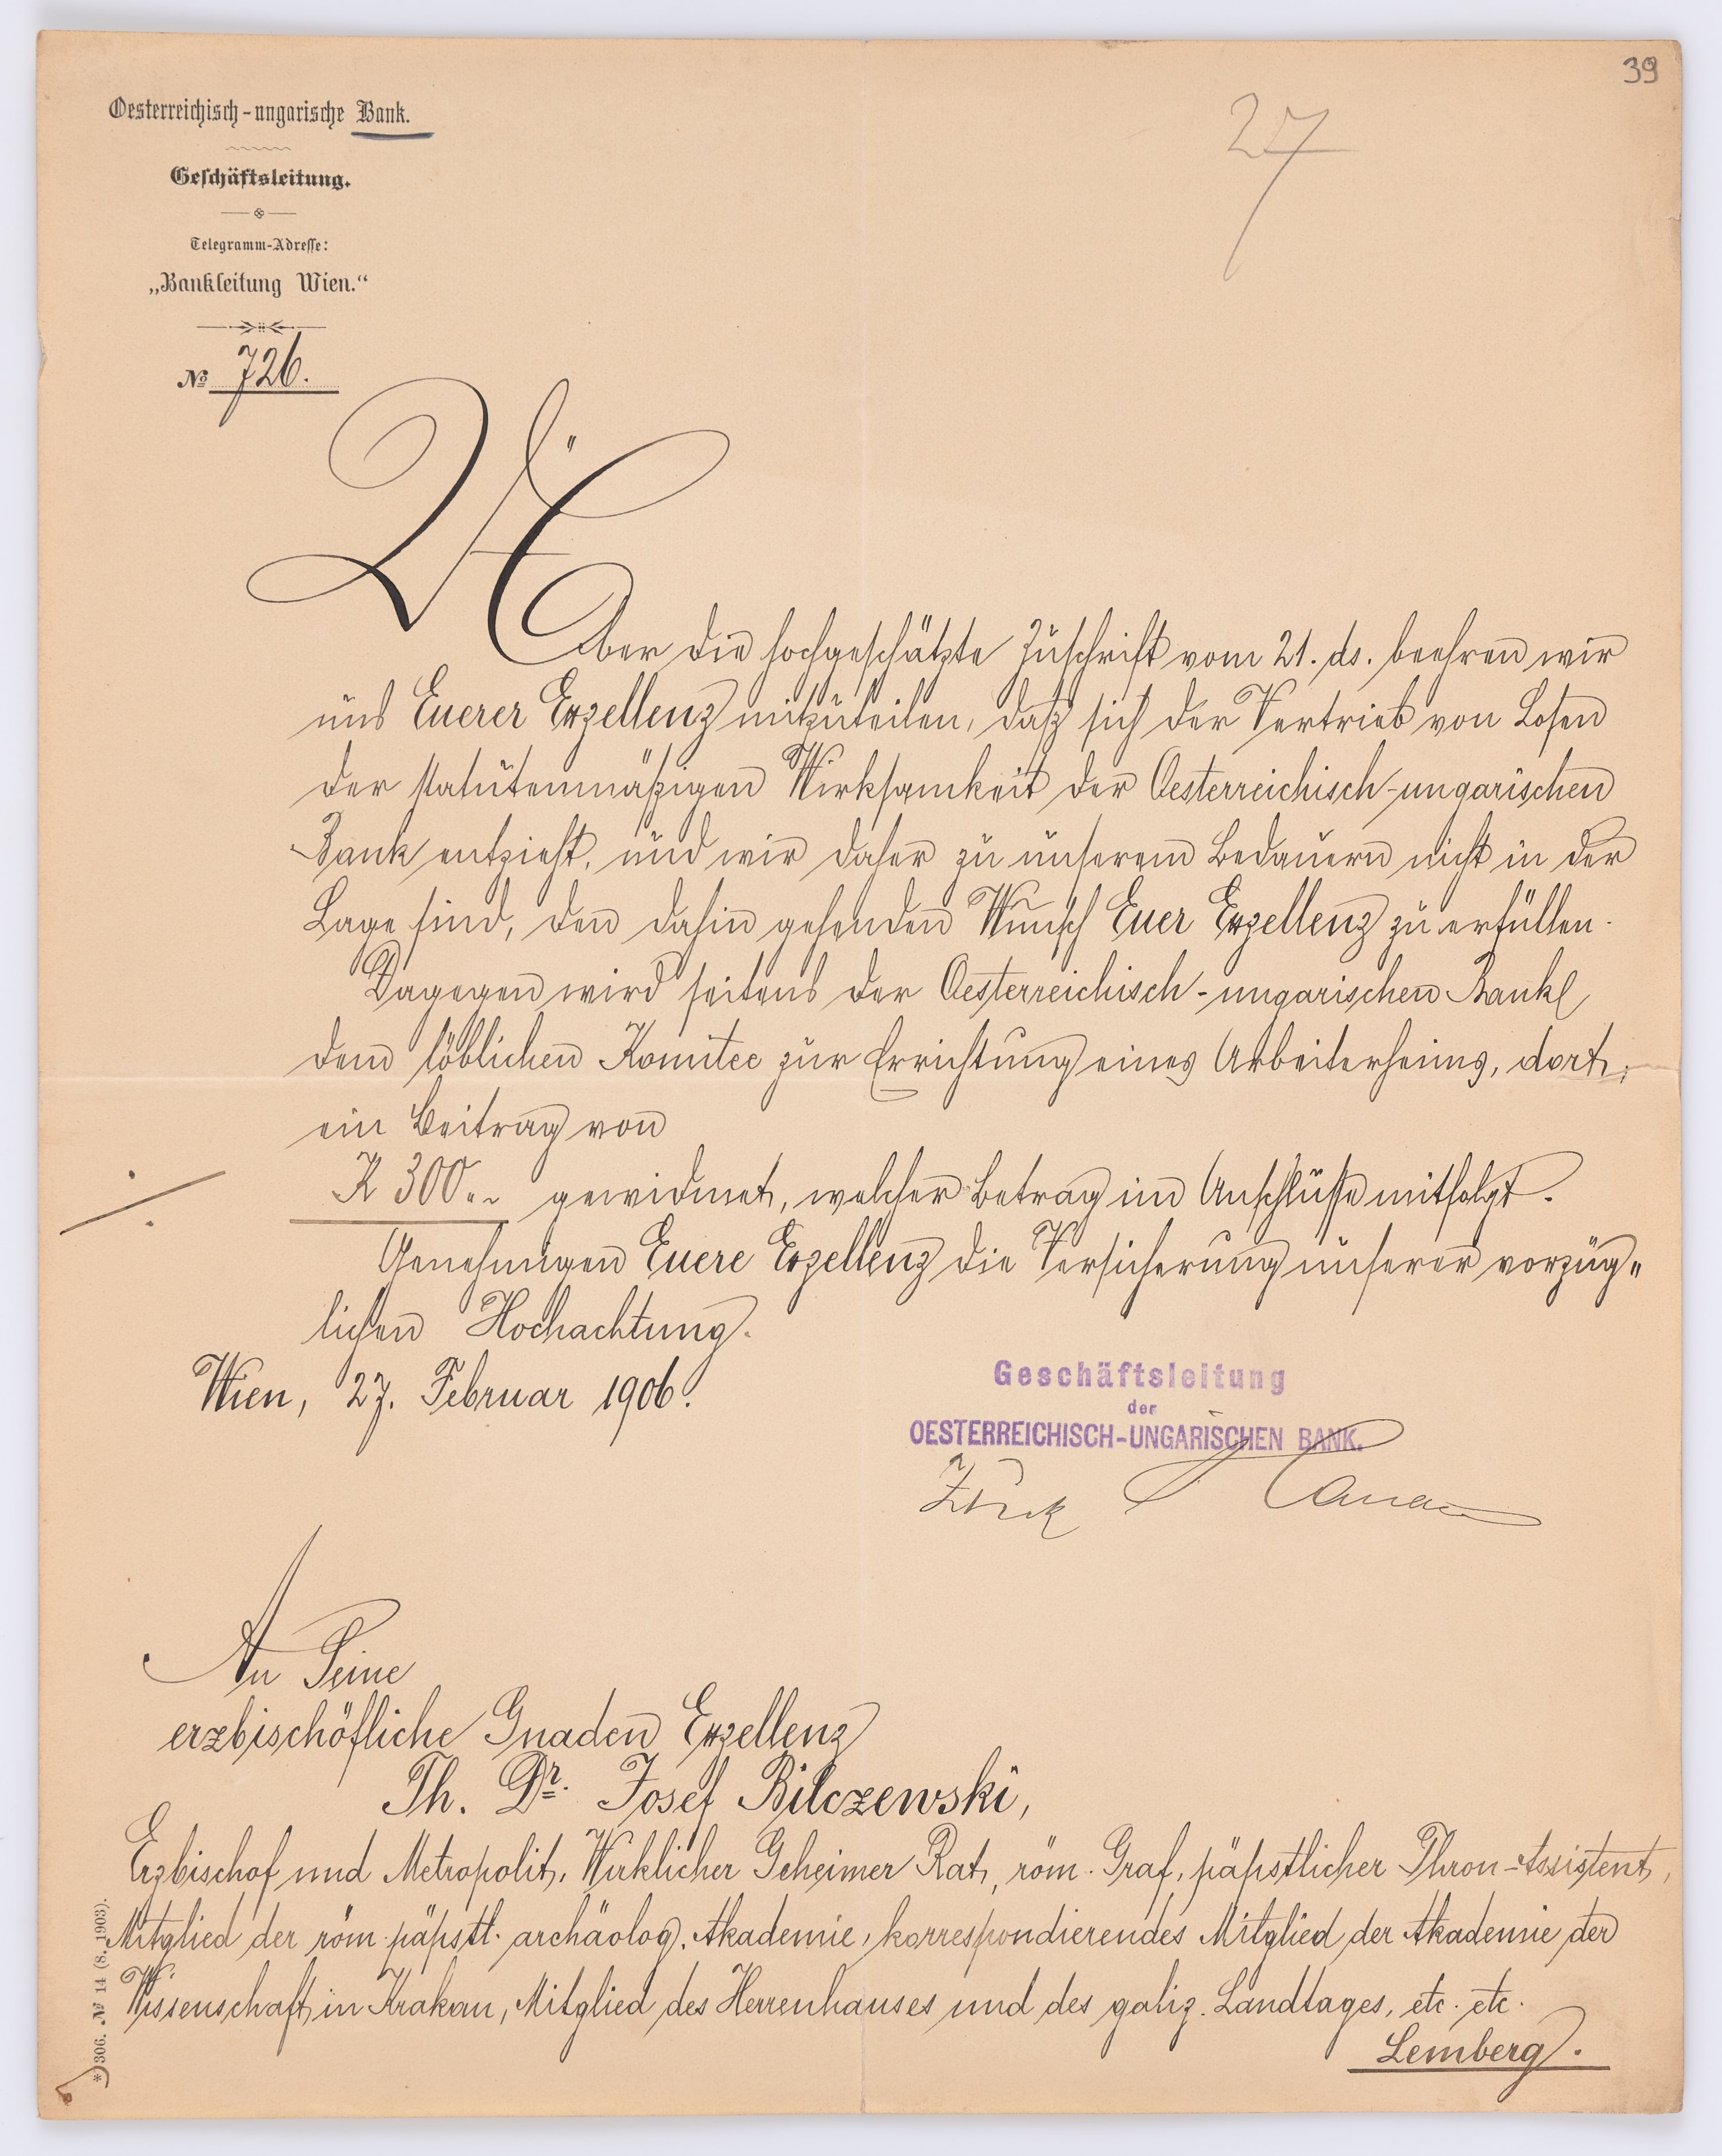 39
27
Oesterreichisch-ungarische Bank.
Geschäftsleitung.
Telegramm-Adresse:
„Bankleitung Wien.“
No 726.
Über die hochgeschätzte Zuschrift vom 21. ds. beehren wir
uns Euerer Exzellenz mitzuteilen, daß sich der Vertrieb von Losen
der statutenmäßigen Wirksamkeit der Oesterreichisch-ungarischen
Bank entzieht, und wir daher zu unserem Bedauern nicht in der
Lage sind, den dahin gehenden Wunsch Euer Exzellenz zu erfüllen.
Dagegen wird seitens der Oesterreichisch-ungarischen Bank
dem löblichen Komitee zur Errichtung eines Arbeiterheims, dort,
ein Beitrag von
K 300.- gewidmet, welcher Betrag im Anschlusse mitfolgt.
Genehmigen Euere Exzellenz die Versicherung unserer vorzüg-
lichen Hochachtung.
Wien, 27. Februar 1906.
Geschäftsleitung
der
OESTERREICHISCH-UNGARISCHEN BANK.
An Seine
erzbischöfliche Gnaden Exzellenz
Th. Dr. Josef Bilczewski,
Erzbischof und Metropolit, Wirklicher Geheimer Rat, röm. Graf, päpstlicher Thron-Assistent,
Mitglied der röm. päpstl. archäolog. Akademie, korrespondierendes Mitglied der Akademie der
Wissenschaft in Krakau, Mitglied des Herrenhauses und des galiz. Landtages, etc. etc.
Lemberg.
*) 306. No 14 (8. 1903).